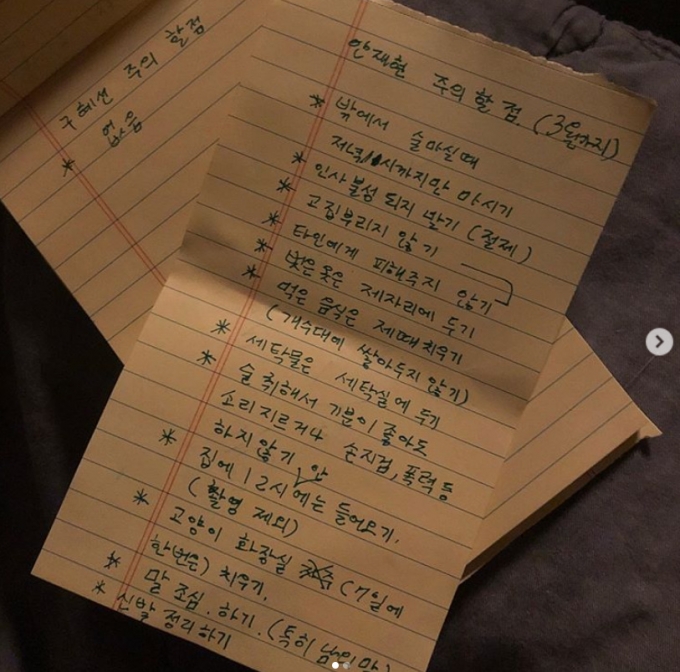 구혜선 주의 할점
* 없음
안재현 주의 할 점. (3일까지)
* 밖에서 술마실때
저녁 시까지만 마시기
* 인사불성 되지 말기 (절제)
* 고집부리지 않기
* 타인에게 피해주지 않기
* 벗은 옷은 제자리에 두기
* 먹은 음식은 제때 치우기
(개수대에 쌓아두지 않기)
* 세탁물은 세탁실에 두기
* 술 취해서 기분이 좋아도
소리지르거나 손찌검, 폭력 등
하지 않기
* 집에 12시 안에는 들어오기.
(촬영 제외)
* 고양이 화장실 (7일에
한번은) 치우기.
* 말 조심. 하기. (특히 남의 말)
* 신발 정리하기